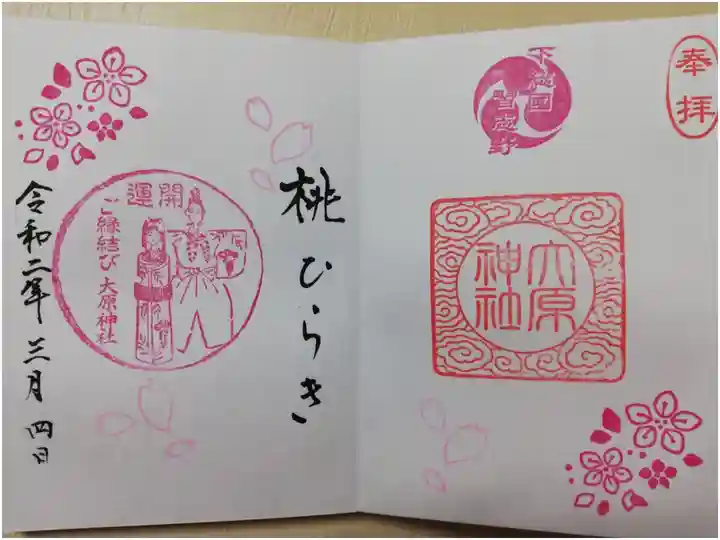 奉拝
下総國
習志野
大原
神社
桃ひらき
開運
ご縁結び 大原神社
令和二年 三月 四日